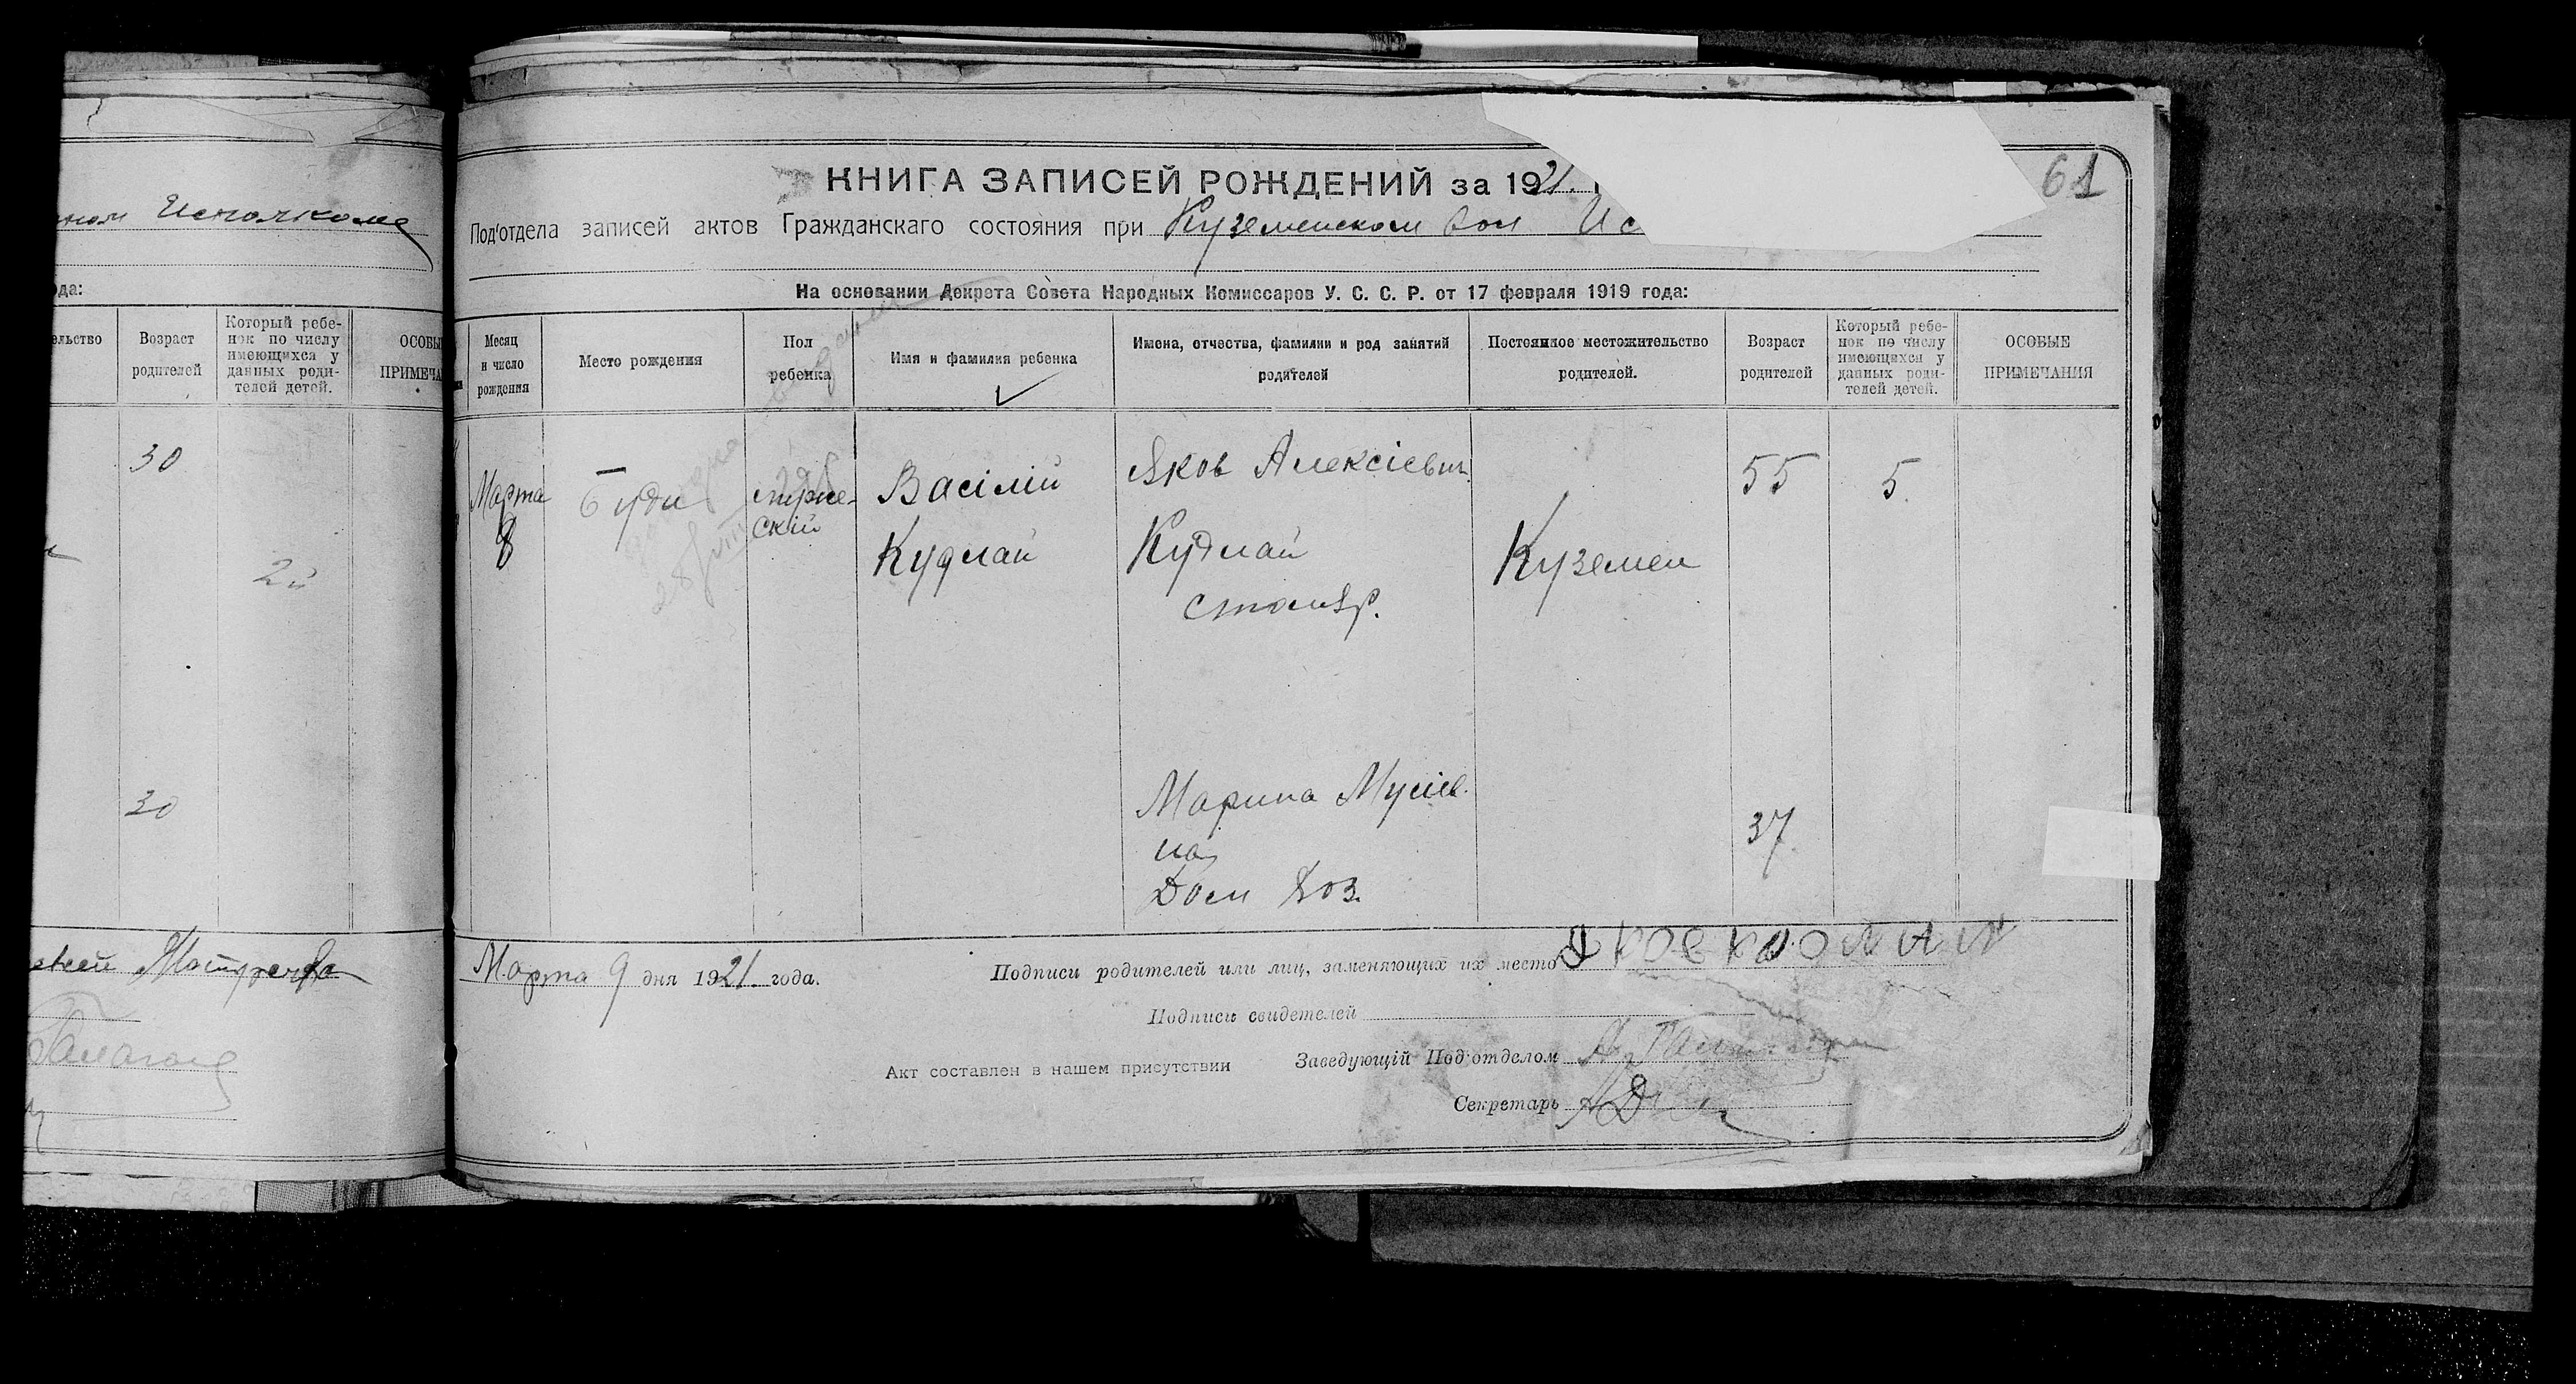 ном Исполкоме
ода:
ельство
Возраст
родителей
Который ребе-
нок по числу
имеющихся у
данных роди-
телей детей.
ОСОБЫ
ПРИМЕЧА
30
2й
30
61
КНИГА ЗАПИСЕЙ РОЖДЕНИЙ за 1921.
Под'отдела записей актов Гражданскаго состояния при Куземенском вол Ис
На основании Декрета Совета Народных Комиссаров У. С. С. Р. от 17 февраля 1919 года:
Месяц
и число
рождения
Место рождения
Пол
ребенка
Имя и фамилия ребенка
Имена, отчества, фамилии и род занятий
родителей
Постоянное местожительство
родителей.
Возраст
родителей
Который ребе-
нок по числу
имеющихся у
данных роди-
телей детей.
ОСОБЫЕ
ПРИМЕЧАНИЯ
Марта
8
Буди
муже-
скій
Васілій
Кудлай
Яков Алексієвич
Кудлай
столяр.
Куземен
55
5.
Марина Мусієв.
на
Дом хоз.
37
Марта 9 дня 1921 года.
Подписи родителей или лиц, заменяющих их место
Подписи свидетелей
Акт составлен в нашем присутствии
Заведующій Под'отделом
Секретарь